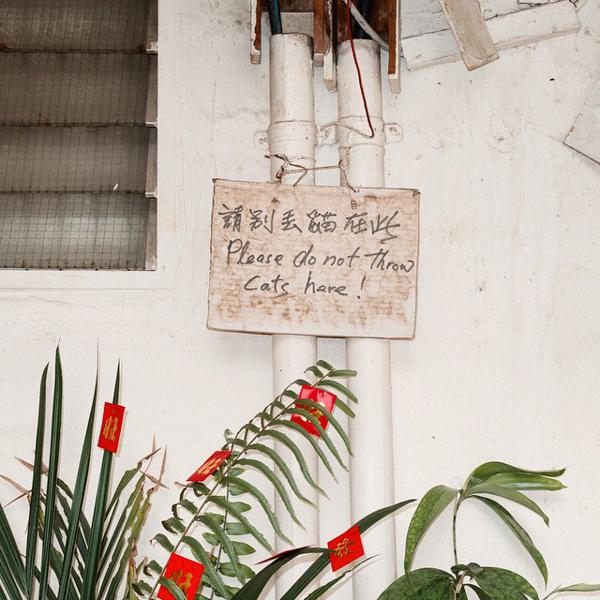 請别丢貓在此
Please do not throw
Cats here!
旺
發
旺